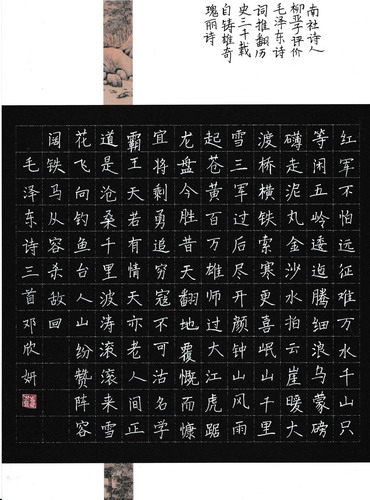 南社诗人
柳亚子评价
毛泽东诗
词推翻历
史三千载
自铸雄奇
瑰丽诗
红军不怕远征难万水千山只
等闲五岭逶迤腾细浪乌蒙磅
礴走泥丸金沙水拍云崖暖大
渡桥横铁索寒更喜岷山千里
雪三军过后尽开颜钟山风雨
起苍黄百万雄师过大江虎踞
龙盘今胜昔天翻地覆慨而慷
宜将剩勇追穷寇不可沽名学
霸王天若有情天亦老人间正
道是沧桑千里波涛滚滚来雪
花飞向钓鱼台人山纷赞阵容
阔铁马从容杀敌回
毛泽东诗三首邓欣妍